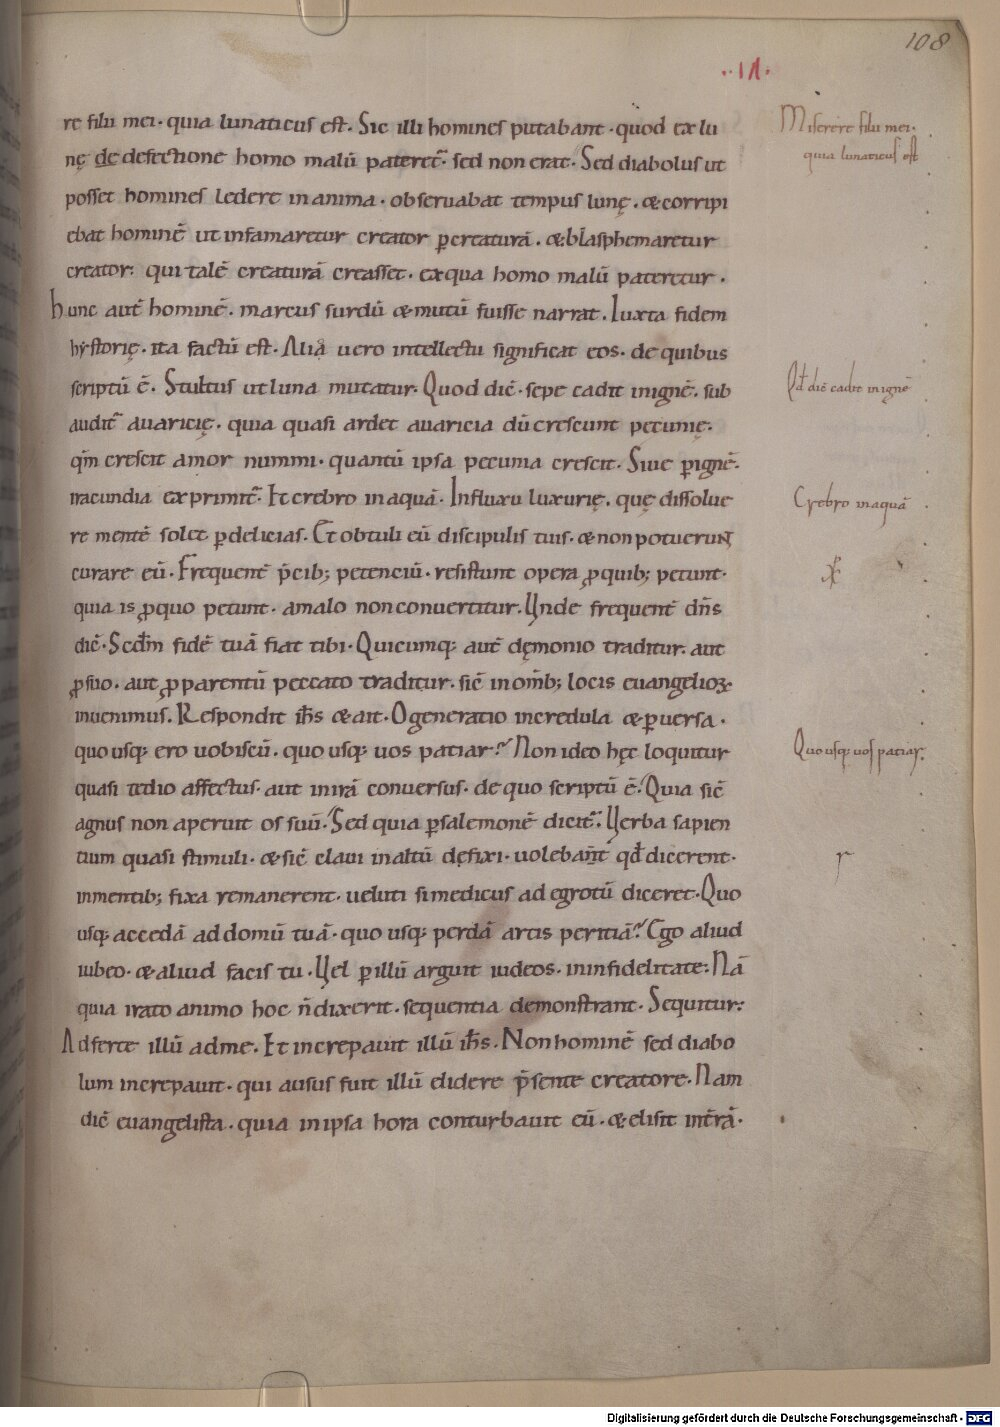 108
..VI.
re filii mei. quia lunaticus est. Sic illi homines putabant. quod ex lu
nę de defectione homo malū pateret᷑. sed non erat. Sed diabolus ut
posset homines ledere in anima. obseruabat tempus lunę. & corripi
ebat hominē ut infamaretur creator p̲ creaturā. & blasphemaretur
creator: qui talē creaturā creasset. ex qua homo malū pateretur.
hunc aut̄ hominē. marcus surdū & mutū fuisse narrat. Iuxta fidem
hystorię. ita factū est. Alia uero intellectu significat eos. de quibus
scriptū ē. Stultus ut luna mutatur. Quod dic̄. sepe cadit in ignē. sub
audit᷑ auaricię. quia quasi ardet auaricia dū crescunt pecunię.
qm̄ crescit amor nummi. quantū ipsa pecunia crescit. Siue p̲ ignē.
iracundia exprimit᷑. Et crebro in aquā. Influxu luxurię. quę dissolue
re mentē solet p̲ delicias. Et obtuli eū discipulis tuis. & non potuerunt
curare eū. Frequent̄ p̄cib; petenciū. resistunt opera ꝓ quib; petunt.
quia is ꝓ quo petunt. a malo non conuertitur. Unde frequent̄ dn̄s
dic̄. Scd̄m fidē tuā fiat tibi. Quicumq; aut̄ dęmonio traditur. aut
ꝓ suo. aut ꝓ parentū peccato traditur. sic̄ in om̄ib; locis euangelioꝝ
inuenimus. Respondit ih̄s & ait. O generatio incredula & p̲uersa.
quo usq; ero uobiscū. quo usq; uos patiar? Non ideo hęc loquitur
quasi tedio affectus. aut in irā conuersus. de quo scriptū ē. Quia sic̄
agnus non aperuit os suū. Sed quia p̲ salemonē dicit᷑. Uerba sapien
tium quasi stimuli. & sic̄ claui in altū dęfixi. uolebant̄ qd̄ dicerent.
in mentib; fixa remanerent. ueluti si medicus ad egrotū diceret. Quo
usq; accedā ad domū tuā. quo usq; perdā artis peritiā? Ego aliud
iubeo. & aliud facis tu. Uel p̲ illū arguit iudeos. in infidelitate: Nā
quia irato animo hoc n̄ dixerit. sequentia demonstrant. Sequitur:
Adferte illū ad me. Et increpauit illū ih̄s. Non hominē sed diabo
lum increpauit. qui ausus fuit illū elidere p̄sente creatore. Nam
dic̄ euangelista. quia in ipsa hora conturbauit eū. & elisit in t̄rā.
Miserere filii mei.
quia lunaticus est
Qd̄ dic̄ cadit in ignē
Crebro in aquā
Quo usq; uos patiar.
r
Digitalisierung gefördert durch die Deutsche Forschungsgemeinschaft - DFG